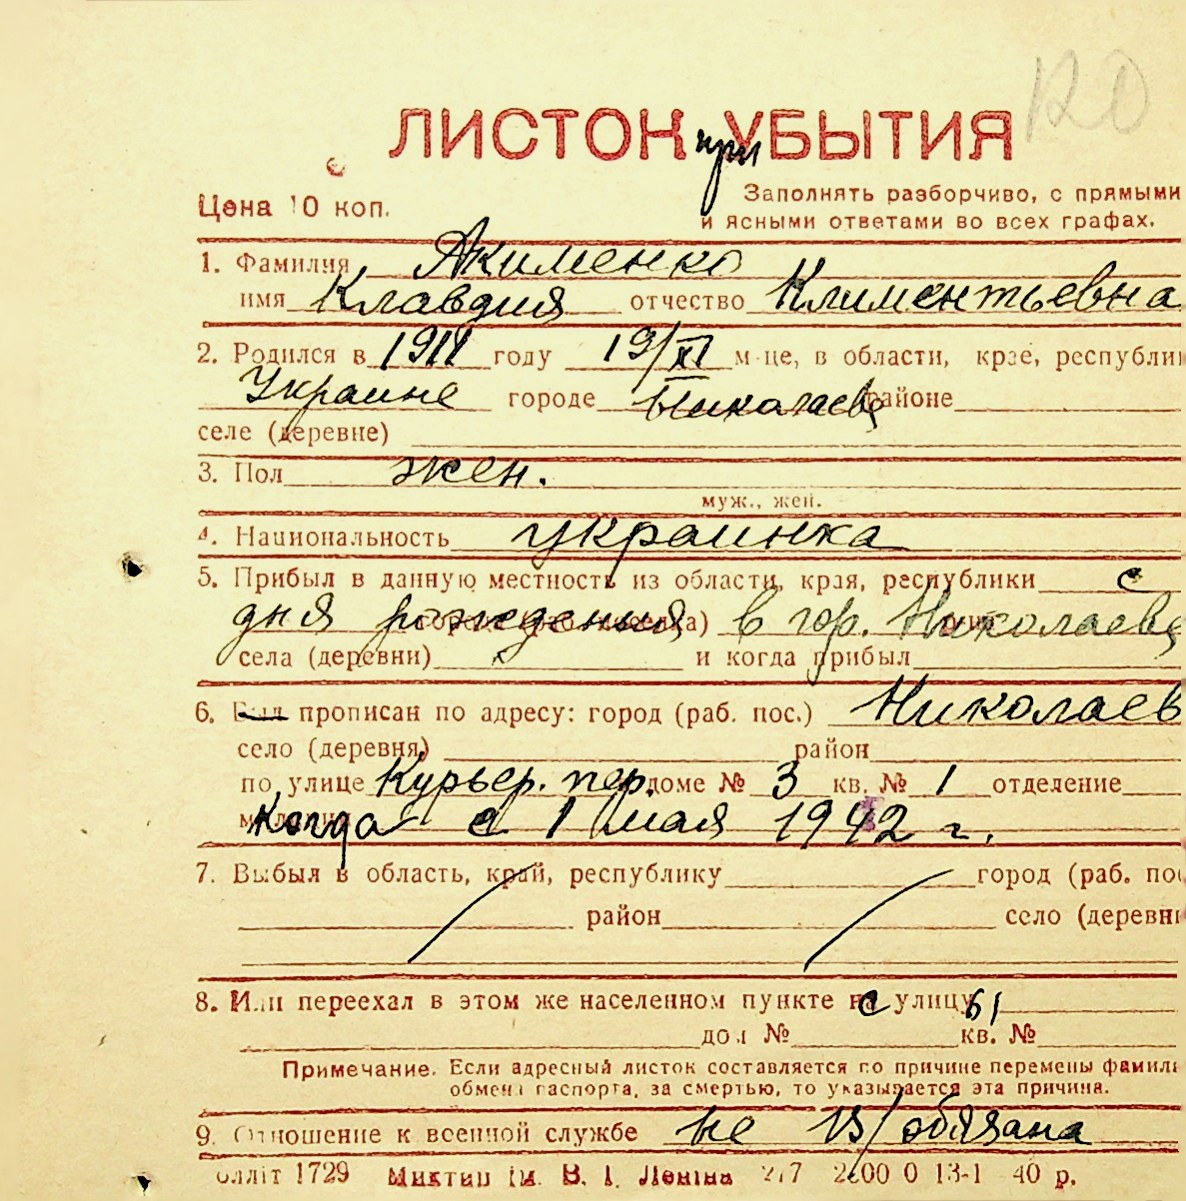 120
ЛИСТОК при УБЫТИЯ
Цена 10 коп.
Заполнять разборчиво, с прямыми
и ясными ответами во всех графах.
1. Фамилия Акименко
имя Клавдия отчество Климентьевна
2. Родился в 1911 году 19/XI м-це, в области, крае, республи
Украине городе Николаеве районе
селе (деревне)
3. Пол жен.
муж., жен.
4. Национальность украинка
5. Прибыл в данную местность из области, края, республики с
дня рождения в гор. Николаеве
села (деревни) и когда прибыл
6. Был прописан по адресу: город (раб. пос.) Николаев
село (деревня) район
по улице Курьер. пер. доме № 3 кв. № 1 отделение
Когда с 1 мая 1942 г.
7. Выбыл в область, край, республику город (раб. пос
район село (деревн
8. Или переехал в этом же населенном пункте на с улицу 61
дом № кв. №
Примечание. Если адресный листок составляется по причине перемены фамил
обмена паспорта, за смертью, то указывается эта причина.
9. Отношение к военной службе не в/обязана
1729 ім. В. І. Леніна 13-1 40 р.